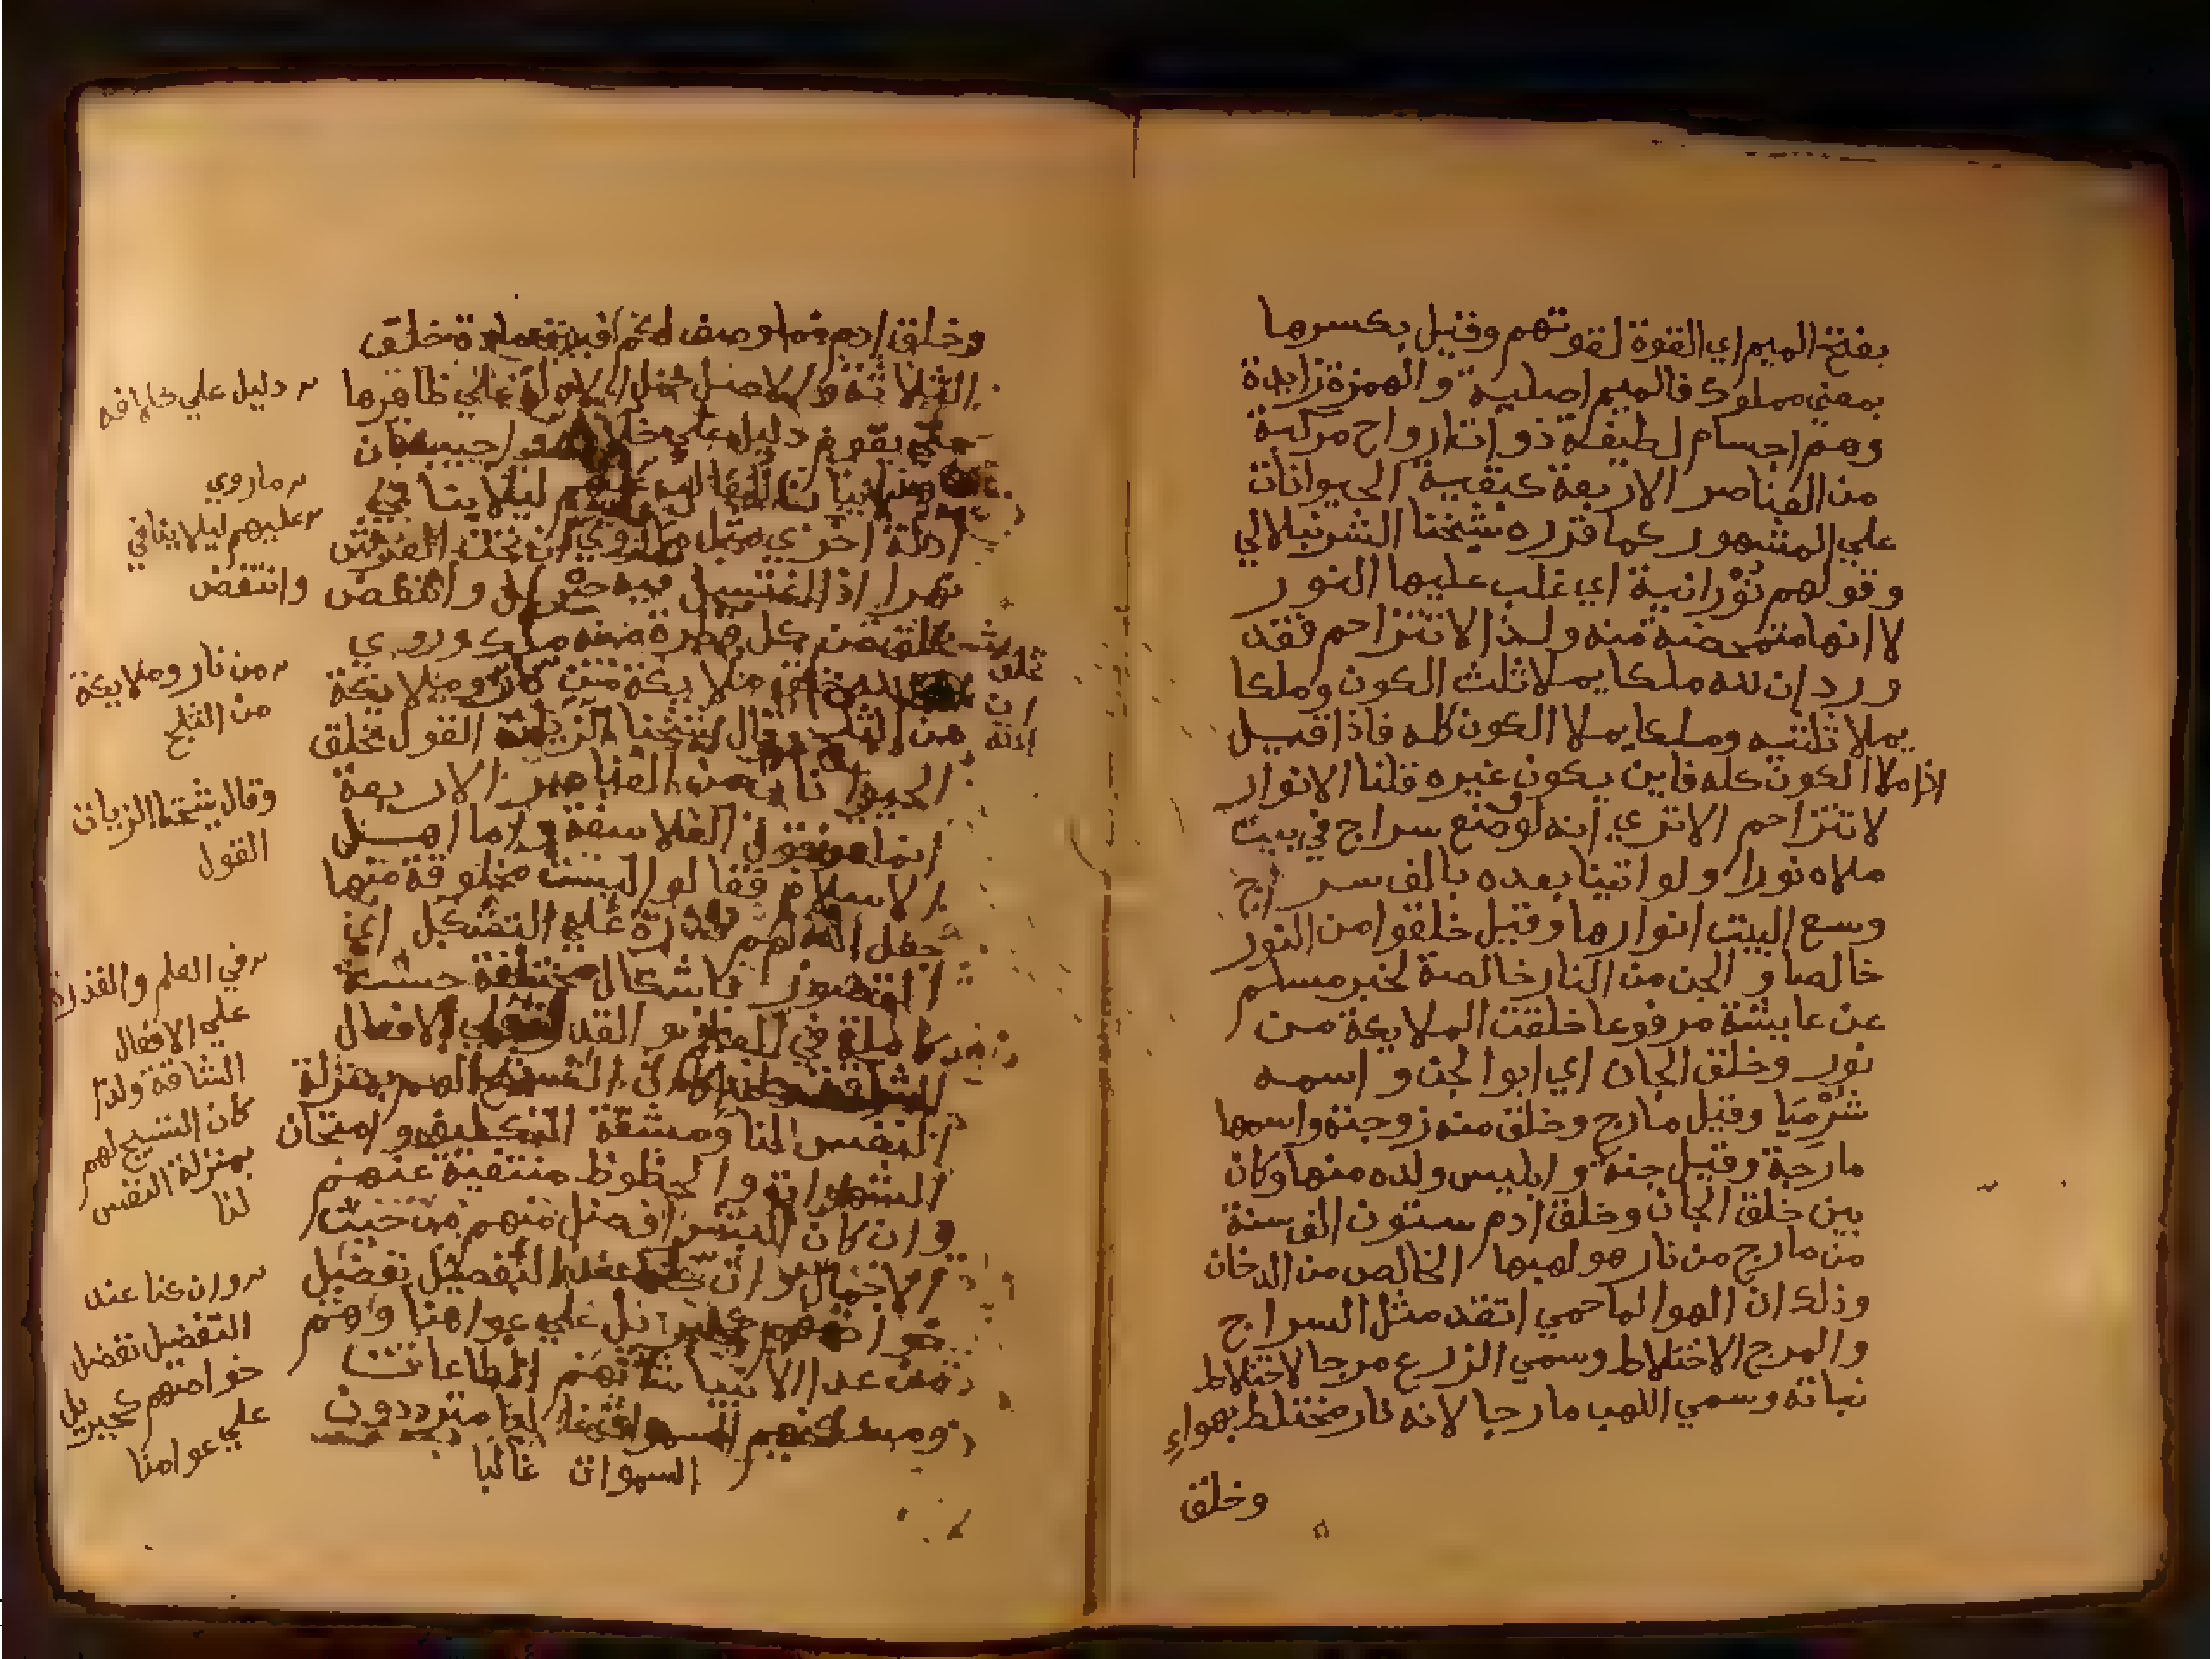 بفتح الميم اي القوة لقوتهم وقيل بكسرها
بمعني مملوك فالميم اصلية والهمزة زايدة
وهم اجسام لطيفة ذوات ارواح مركبة
من العناصر الاربعة كبقية الحيوانات
علي المشهور كما قرره شيخنا الشرنبلالي
وقولهم نورانية اي غلب عليها النور
لا انها متمحضة منه ولذا لا تتزاحم فقد
ورد ان لله ملكا يملا ثلث الكون وملكا
يملا ثلثيه وملكا يملا الكون كله فاذا قيل
اذا ملا الكون كله فاين يكون غيره قلنا الانوار
لا تتزاحم الا تري انه لو وضع سراج في بيت
ملاه نورا ولو اتينا بعده بالف سراج
وسع البيت انوارها وقيل خلقوا من النور
خالصا و الجن من النار خالصة لخبر مسلم
عن عايشة مرفوعا خلقت الملايكة من
نور وخلق الجان اي ابو الجن و اسمه
شرميا وقيل مارج وخلق منه زوجته واسمها
مارجة وقيل جنة و ابليس ولده منها وكان
بين خلق الجان وخلق ادم ستون الف سنة
من مارج من نار هو لهبها الخالص من الدخان
وذلك ان الهوا لما حمي اتقد مثل السراج
والمرج الاختلاط وسمي الزرع مرجا لاختلاط
نباته وسمي اللهب مارجا لانه نار مختلط بهواء
وخلق
وخلق ادم مما وصف لكم خلق
الثلاثة و الاصل حمل علي ظاهرها
حتي يقوم دليل علي
ليلا ينافي
ادلة اخري مثل ما روي ان تحت العرش
نهرا اذا اغتسل فيه جبريل وانتقض
يخلق من كل قطرة منه ملك وروي
ملايكة من نار وملايكة
من الثلج وقال شيخنا الزيات القول بخلق
الحيوانات من العناصر الاربعة
انما هو قول الفلاسفة و اما اهل
الاسلام فقالوا ليست مخلوقة منها
جعل الله لهم قدرة علي التشكل اي
التصور باشكال مختلفة حسنة
كاملة في العلم و القدرة علي الافعال
الشاقة كان التسبيح لهم بمنزلة
النفس لنا ومشقة التكليف و امتحان
الشهوات والحظوظ منتفية عنهم
وان كان البشر افضل منهم من حيث
الاجمال و ان كنا عند التفصيل نفضل
خواصهم كجبريل علي عوامنا وهم
من عدا الانبيا شانهم الطاعات
ومسكنهم السموات مترددون
السموات غالبا
دليل علي خلافه
ما روي
عليهم ليلا ينافي
وانتقض
من نار وملايكة
من الثلج
وقال شيخنا الزيات
القول
في العلم والقدرة
علي الافعال
الشاقة ولذا
كان التسبيح لهم
بمنزلة النفس
لنا
وان كنا عند
التفضيل نفضل
خواصهم كجبريل
علي عوامنا